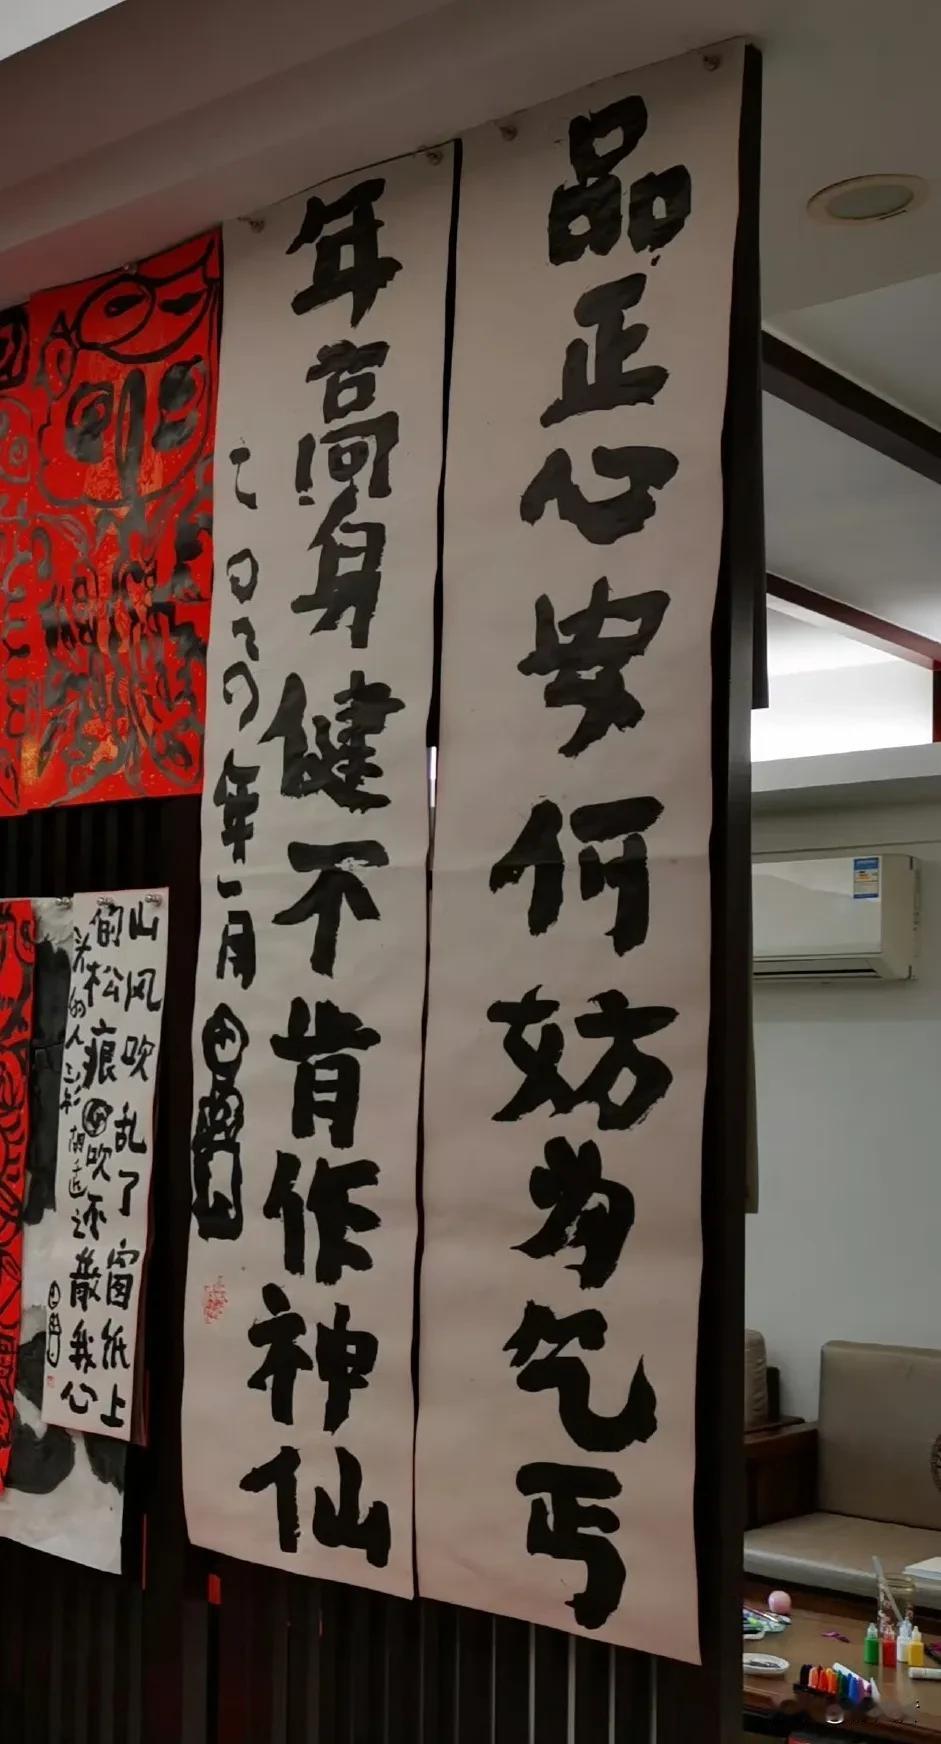 品正心安何妨为乞丐
年高身健不肯作神仙
年一月
山风吹乱了窗纸上
的松痕吹不散我心
头的人影 胡适之